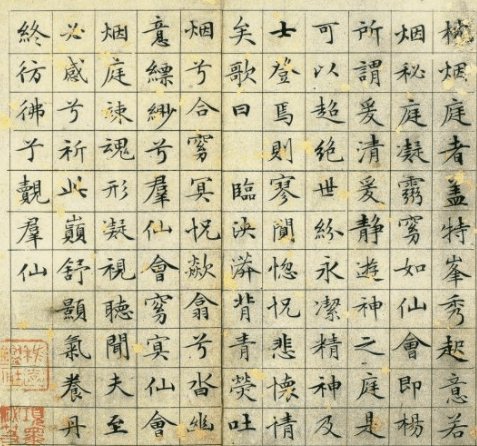 枕烟庭者盖特峯秀起意若
烟秘庭凝靄窅如仙會即楊
所謂爰清爰静遊神之庭是
可以超絶世紛永潔精神及
士登焉則寥闃惚怳悲懷情
矣歌曰 臨泱漭背青熒吐
烟兮合窅冥怳歘翕兮沓幽
意縹緲兮羣仙會窅冥仙會
烟庭竦魂形凝視聽聞夫至
必感兮祈此巔舒顥氣養丹
終彷彿兮覿羣仙